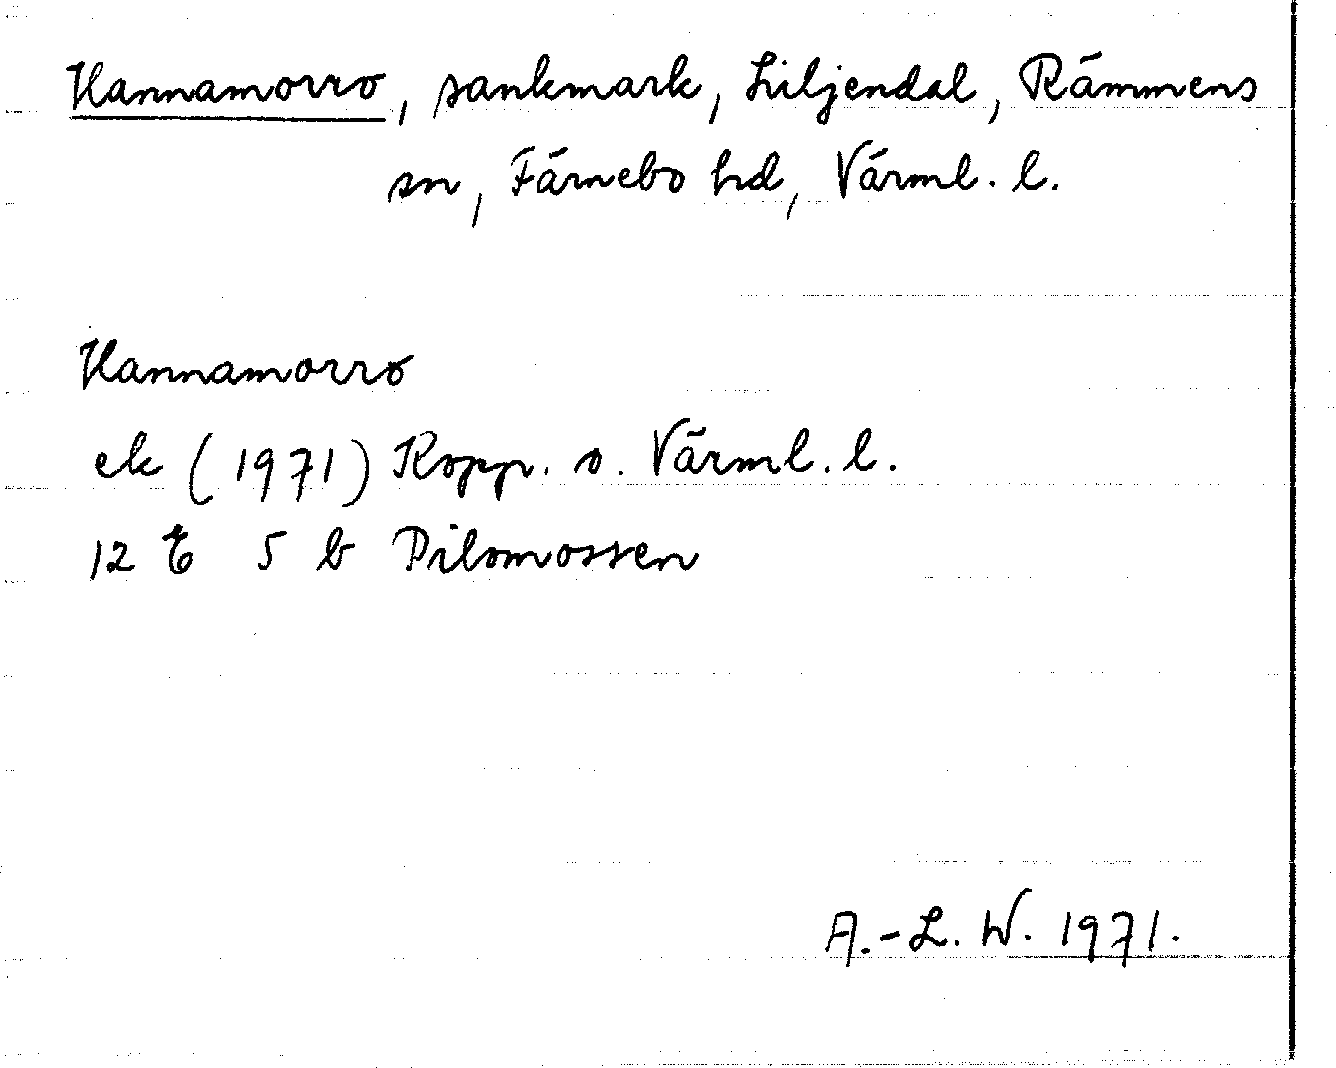 Hannamorro, sankmark, Liljendal, Rämmens
sn, Färnebo hd, Värml. l.
Hannamorro
ek (1971) Kopp. o. Värml. l.
12 E 5 b Pilsmossen
A.-L. W. 1971.